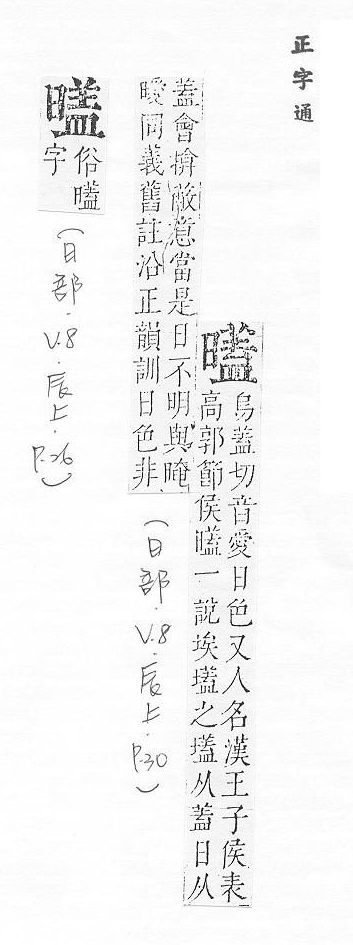 正字通
烏蓋切音愛日色又人名漢王子侯表
高郭節侯 一說埃壒之壒从蓋日从
蓋會揜蔽意當是日不明與晻
曖同義舊註沿正韻訓日色非
(日部.V.8.辰上.P.30)
俗
字
(日部.V.8.辰上.P.26)